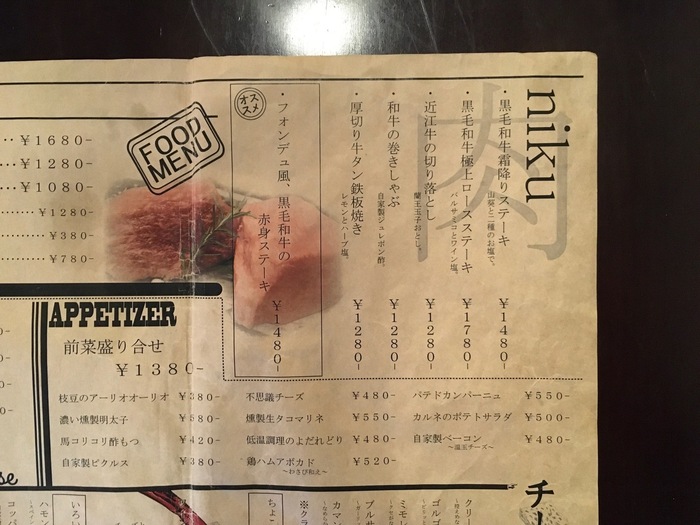 niku
肉
・黒毛和牛霜降りステーキ ¥1480-
山葵と二種のお塩で。
・黒毛和牛極上ロースステーキ ¥1780-
バルサミコとワイン塩。
・近江牛の切り落とし ¥1280-
蘭王玉子おとし。
・和牛の巻きしゃぶ ¥1280-
自家製ジュレポン酢。
・厚切り牛タン鉄板焼き ¥1280-
レモンとハーブ塩。
オススメ
・フォンデュ風、黒毛和牛の
赤身ステーキ ¥1480-
FOOD
MENU
¥1680-
¥1280-
¥1080-
¥1280-
¥380-
¥780-
APPETIZER
前菜盛り合せ
¥1380-
枝豆のアーリオオーリオ ¥380-
濃い燻製明太子 ¥580-
馬コリコリ酢もつ ¥420-
自家製ピクルス ¥380-
不思議チーズ ¥480-
燻製生タコマリネ ¥550-
低温調理のよだれどり ¥480-
鶏ハムアボカド ¥520-
～わさび和え～
パテドカンパーニュ ¥550-
カルネのポテトサラダ ¥500-
自家製ベーコン ¥480-
～温玉チーズ～
チ
タリー
ゴルゴ
ミモレ
ブルサ
カマン
※クラ
ちょこ
いろい